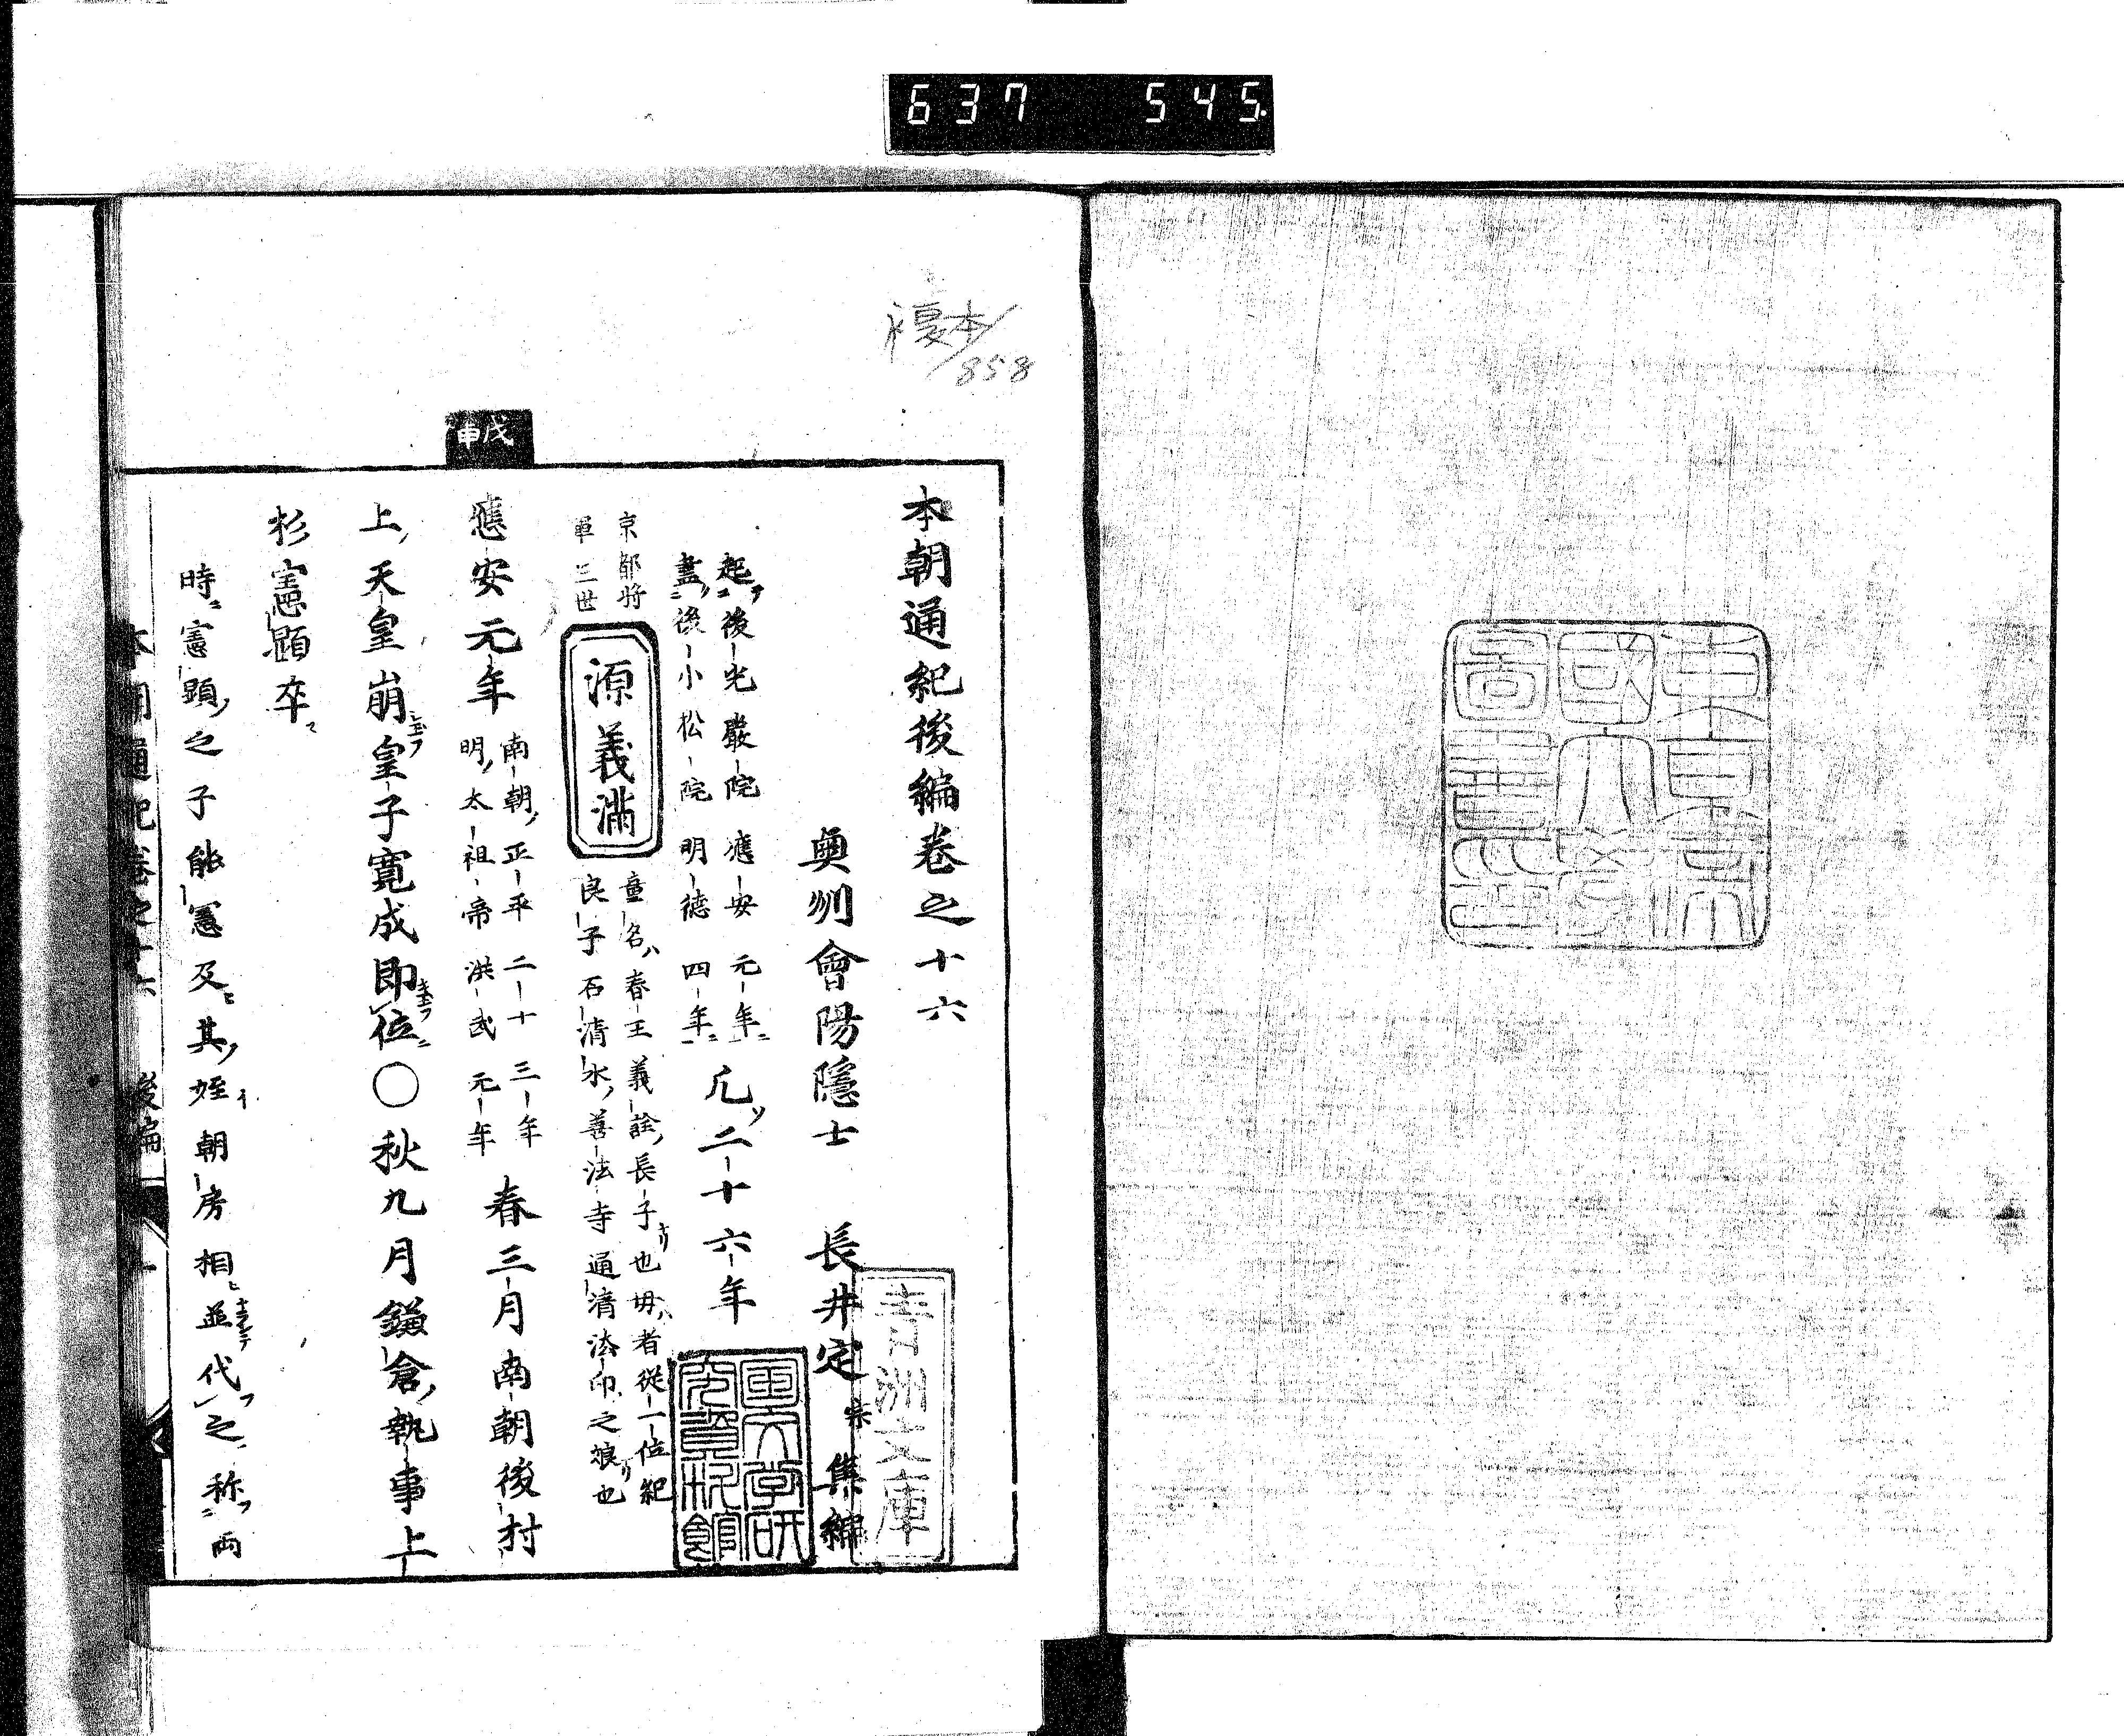 637 545
複本/858
東京帝
國大學
圖書印
本朝通紀後編卷之十六
奥州會陽隱士 長井定宗 集編
青洲文庫
起後光嚴院應安元年
盡後小松院明德四年
凡二十六年
京都將
軍三世
源義滿
童名ハ春王義詮長子ナリ也母ハ者從一位紀
良子石清水善法寺通清法印之娘ナリ也
戊申
應安元年
南朝正平二十三年
明太祖帝洪武元年
春三月南朝後村
上天皇崩皇子寬成即位〇秋九月鎌倉執事上
杉憲顕卒
時ニ憲顕之子能憲及ヒ其姪朝房相ヒ並代之称ニ両
本朝通紀卷之十六 後編 一